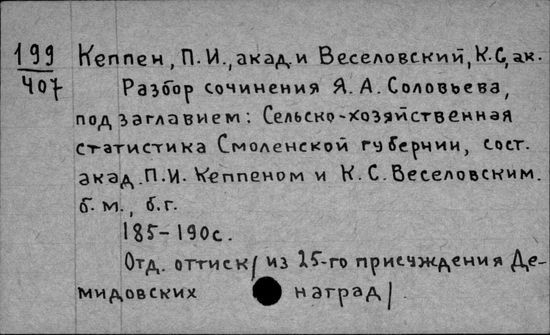 199
407
Кеппен, П.И., акад. и Веселовский, К.С., ак.
Разбор сочинения Я.А. Соловьева,
под заглавием: Сельско-хозяйственная
статистика Смоленской губернии, сост.
акад. П.И. Кеппеном и К.С. Веселовским.
б.м., б.г.
185-190с.
Отд. оттиск/ из 25-го присуждения Де-
мидовских наград/.